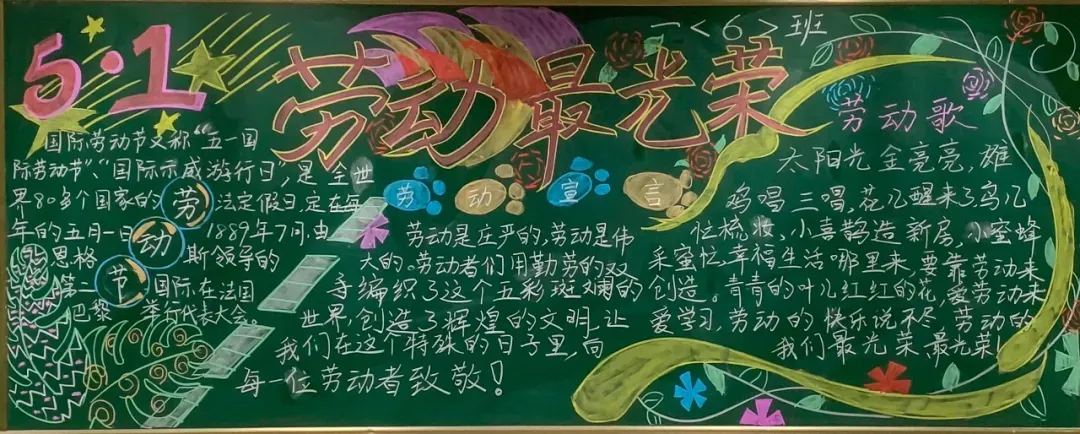 5·1
劳动最光荣
一<6>班
国际劳动节又称“五一国
际劳动节”、“国际示威游行日”,是全世
界80多个国家的 法定假日,定在每
年的五月一日 1889年7月,由
恩格 斯领导的
第二 国际在法国
巴黎 举行代表大会。
劳
动
节
劳动宣言
劳动是庄严的,劳动是伟
大的。劳动者们用勤劳的双
手编织了这个五彩斑斓的
世界,创造了辉煌的文明,让
我们在这个特殊的日子里,向
每一位劳动者致敬!
劳动歌
太阳光金亮亮,雄
鸡唱三唱,花儿醒来了鸟儿
忙梳妆,小喜鹊造新房,小蜜蜂
采蜜忙幸福生活哪里来,要靠劳动来
创造。青青的叶儿红红的花,爱劳动来
爱学习,劳动的快乐说不尽 劳动的
我们最光荣,最光荣!